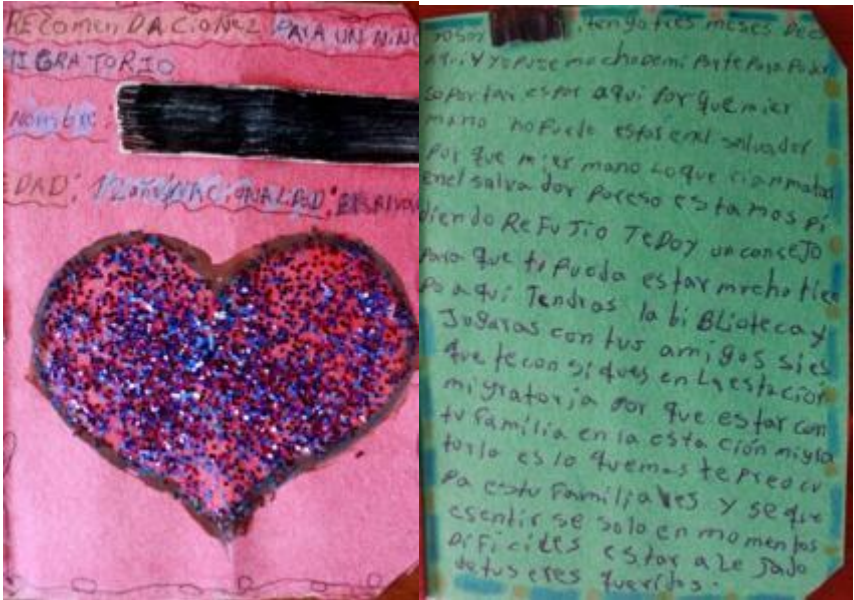 RECOMENDACIONEZ PARA UN NIÑO
MIGRATORIO
Nombre:
EDAD: 12 años NACIONALIDAD:
tengo tres meses De
aqui y yo puse mucho De mi parte Para Poder
soportar estar aqui Por que mi er
mano no Puede estar en el salvador
Por que mi er mano lo que rian matar
en el salvador por eso estamos pi
diendo REFUJIO TE DOY un consejo
Para que tu Pueda estar mucho tiem
Po aqui Tendras la biBLioteca y
Jugaras con tus amigos si es
que te consigues en La estación
migratoria Por que estar con
tu familia en la estación migra
toria es lo que mas te preocu
Pa es tu Familia ves y se que
es sentir se solo en momentos
DiFiciles estar aLeJado
de tus seres queridos.